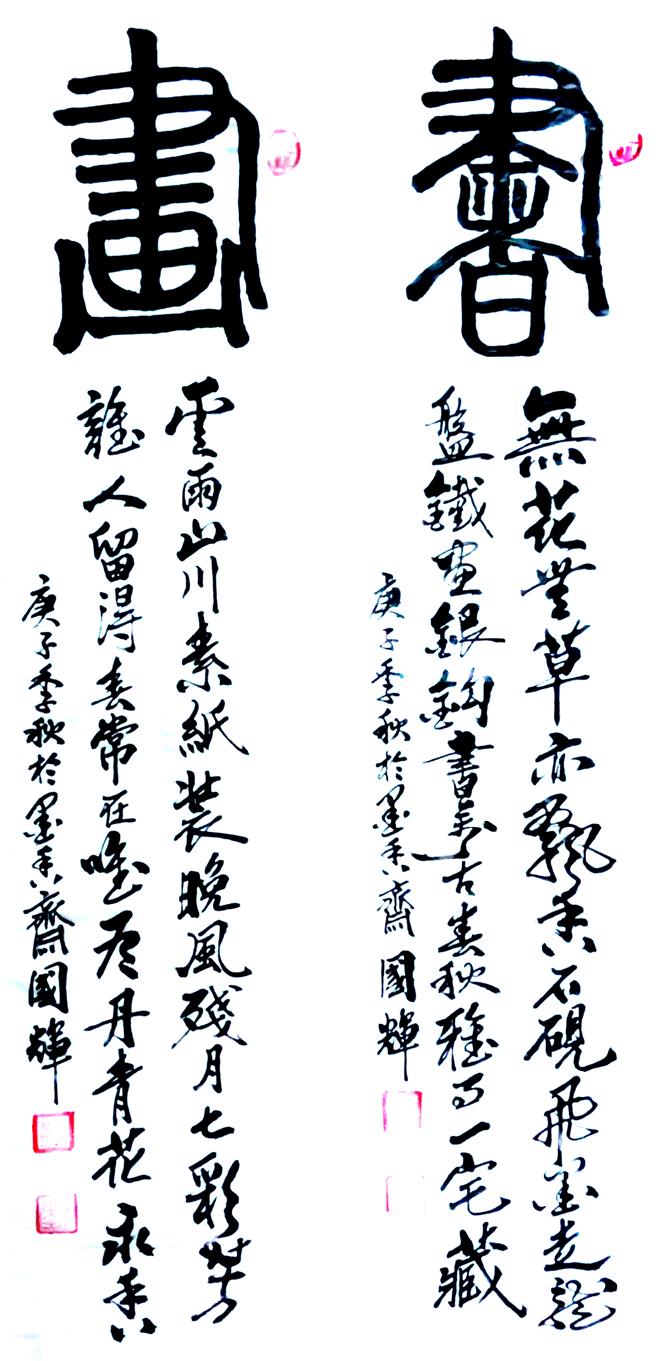 書
無花無草亦飄香石硯飛墨走龍
盤鐵畫銀鉤書萬古春秋雅事一宅藏
庚子季秋於墨香齋國輝
畫
雲雨山川素紙裝晚風殘月七彩芳
誰人留得春常在唯有丹青花永香
庚子季秋於墨香齋國輝